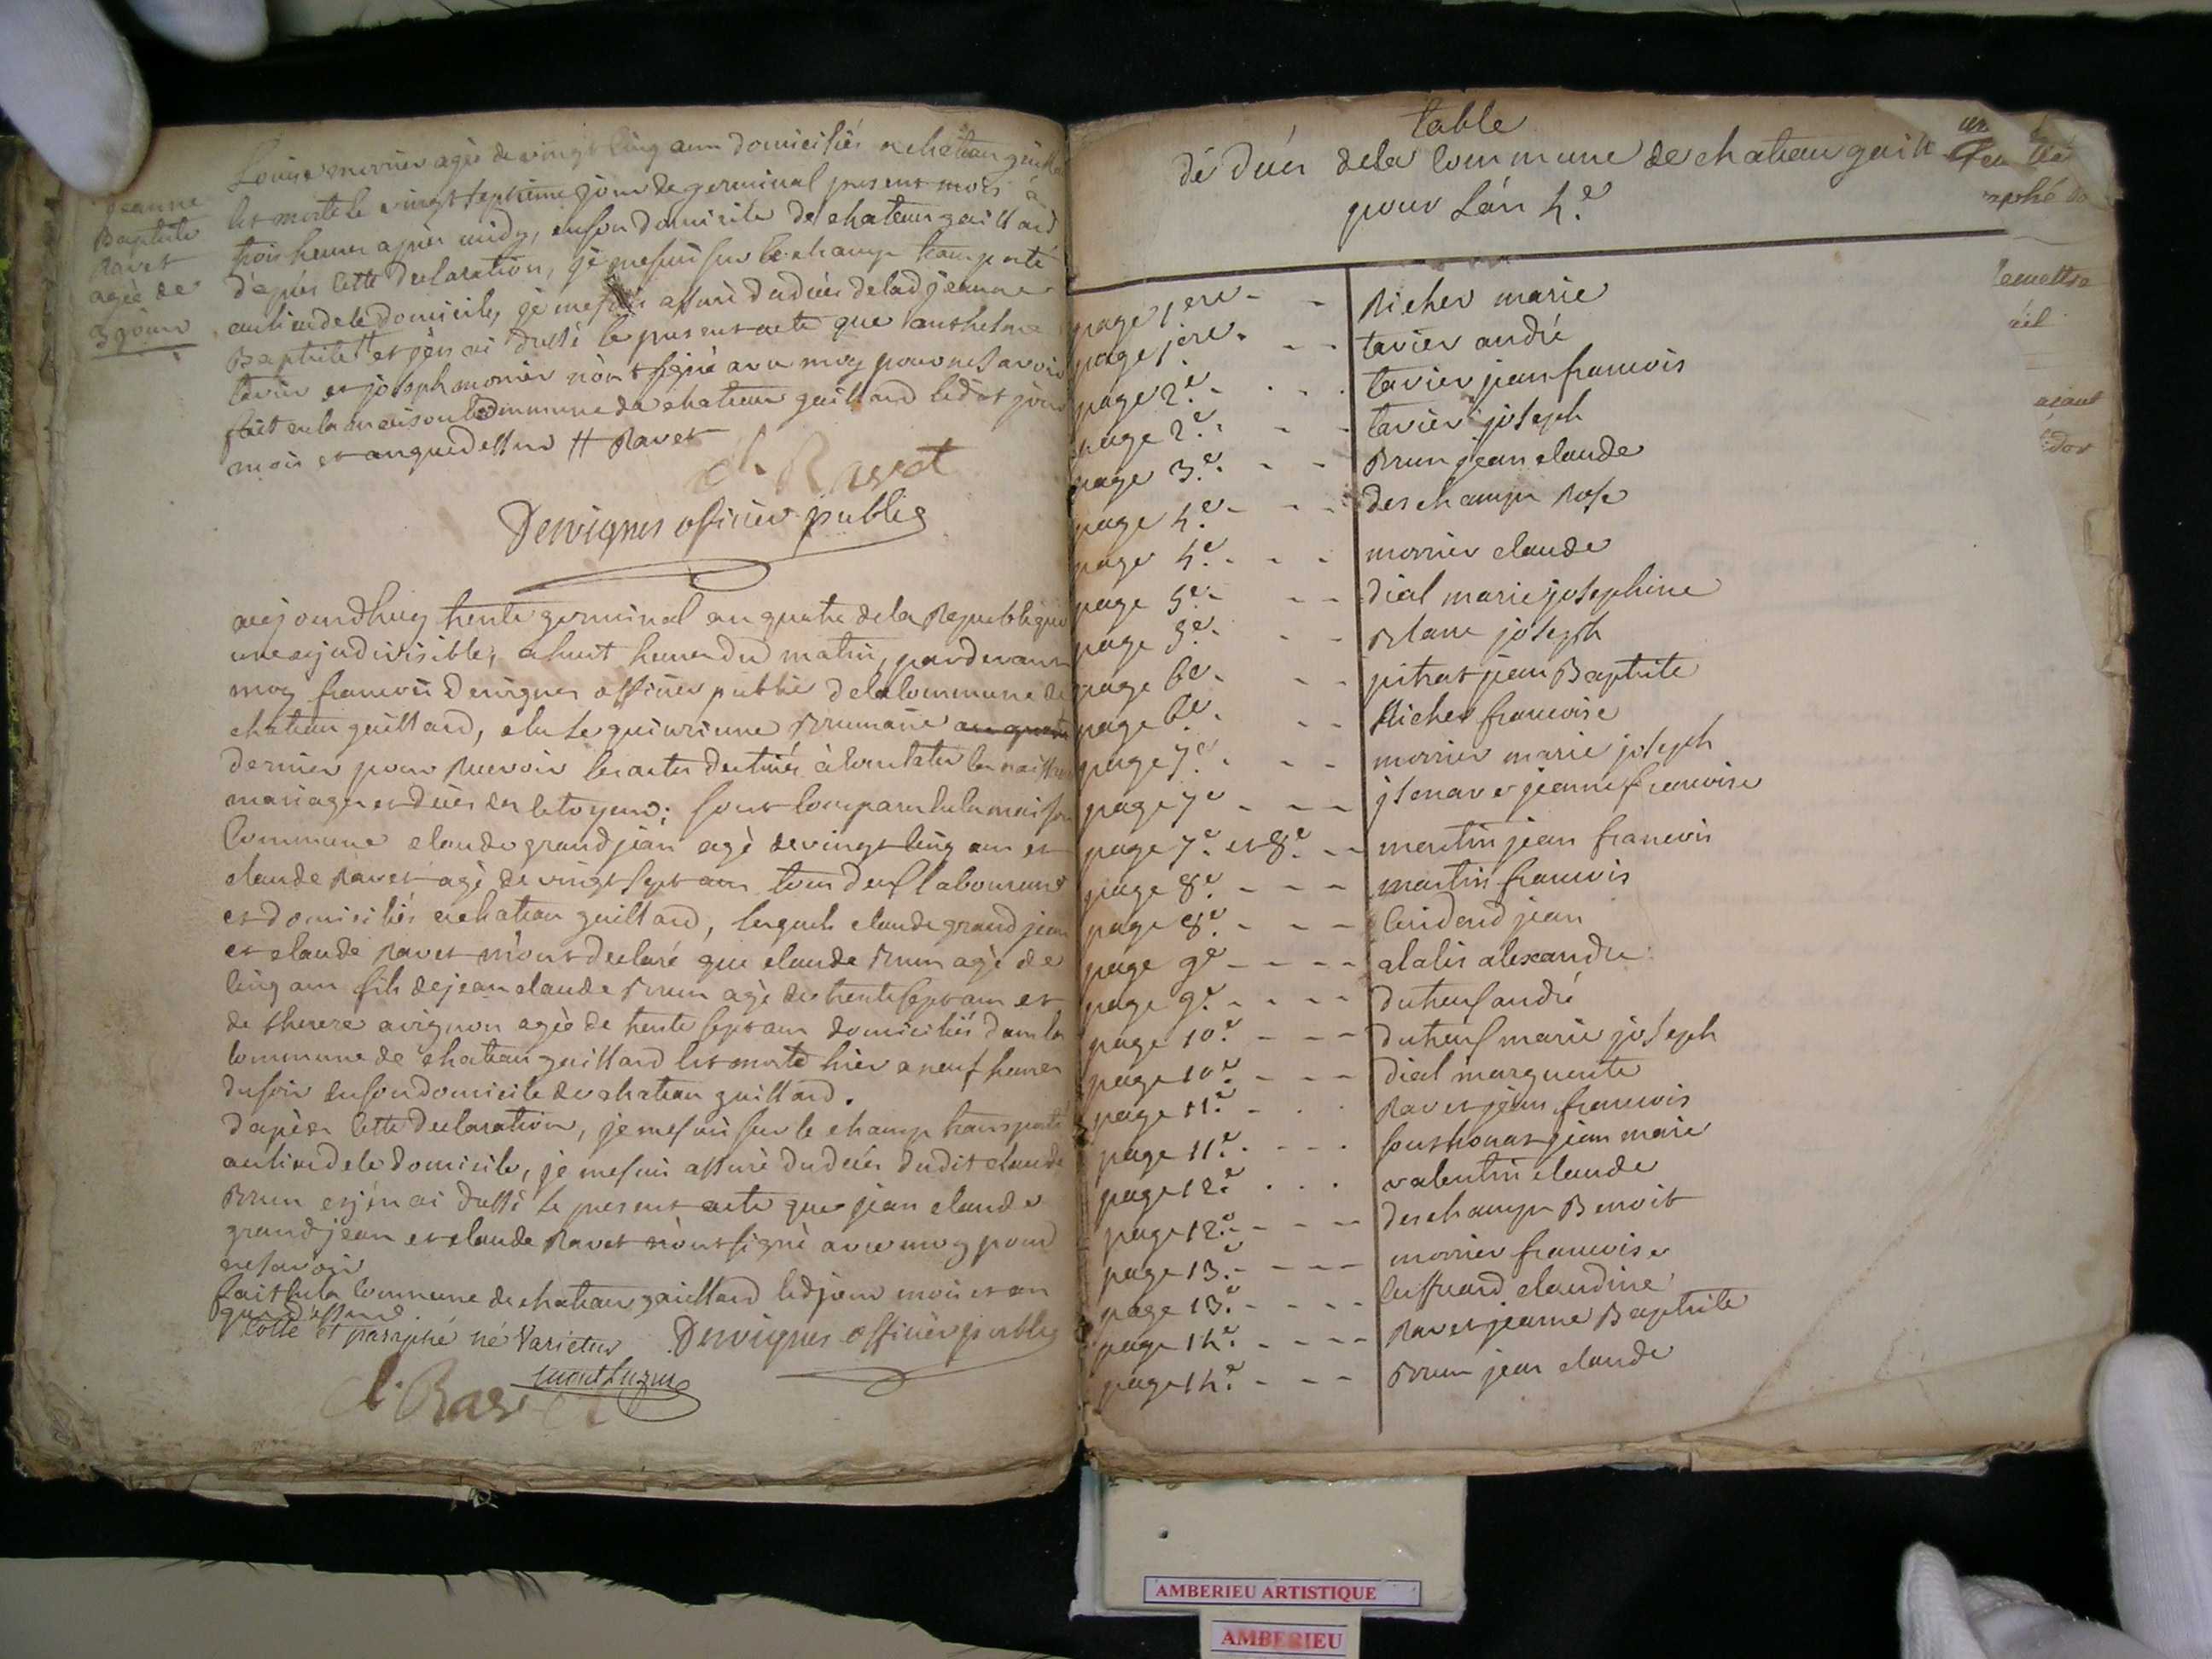 Louise morrier agée de vingt cinq ans domiciliés a chateau gaillard
est morte le vingt septieme jour de germinal present mois à
trois heures après midy, en son domicile de chateau gaillard
d'après cette declaration, je me suis sur le champ transporté
au lieu de ce domicile, je me suis assuré du décès de lad jeanne
Baptiste et j'en ai dressé le present acte que anthelme
tavier et joseph morrier n'ont signé avec moy pour ne savoir
fait en la maison commune de chateau gaillard led jour
mois et an que dessus # Ravet
Jeanne
Baptiste
Ravet
agée de
3 jours
C. Ravet
Dervignes officier public
aujourdhuy trente germinal an quatre de la Republique
une et indivisible, a huit heures du matin, pardevant
moy francois Dervignes officier public de la commune de
chateau gaillard, elu le quinzieme Brumaire
dernier pour recevoir les actes destinés à constater les naissances
mariages et décès des citoyens; sont comparu en la maison
Commune claude grandjean agé de vingt cinq ans et
claude Ravet agé de vingt sept ans tous deux laboureurs
et domiciliés a chateau gaillard, lesquels claude grandjean
et claude Ravet m'ont declaré que claude Brun agé de
cinq ans fils de jean claude Brun agé de trente sept ans et
de therese avignon agée de trente sept ans domiciliés dans la
commune de chateau gaillard est morte hier a neuf heures
du soir en son domicile de chateau gaillard.
d'après cette declaration, je me suis sur le champ transporté
au lieu de ce domicile, je me suis assuré du décès dudit claude
Brun et j'en ai dressé le present acte que jean claude
grandjean et claude Ravet n'ont signé avec moy pour
ne savoir
fait en la commune de chateau gaillard led jour mois et an
que dessus
Cotté et paraphé né Varietur Dervignes officier public
C. Ravet
table
de décès de la commune de chateau gaill
pour L'án 4.e
page 1ere - - Richer marie
page 1ere - - tavier andré
page 2.e - - - tavier jean francois
page 2.e - - tavier joseph
page 3.e - - Brun jean claude
page 4.e - - - deschamps Rose
page 4.e - - - morrier claude
page 5.e - - dial marie josephine
page 5.e - - Blanc joseph
page 6e - - pitrat jean Baptiste
page 6e - - Richer francoise
page 7.e - - - morrier marie joseph
page 7e - - - jeanne francoise
page 7.e et 8.e - - martin jean francois
page 8.e - - - martin francois
page 8.e - - - jean
page 9e - - - - alalis alexandre
page 9.e - - - - duheuf andré
page 10.e - - - duheuf marie joseph
page 10e - - - dial marguerite
page 11.e - - - Ravet jean francois
page 11.e - - - jean marie
page 12.e - - - valentin claude
page 12.e - - - deschamps Benoit
page 13.e - - - morrier francoise
page 13.e - - - - claudine
page 14.e - - - - Ravet jeanne Baptiste
page 14.e - - - Brun jean claude
AMBERIEU ARTISTIQUE
AMBERIEU